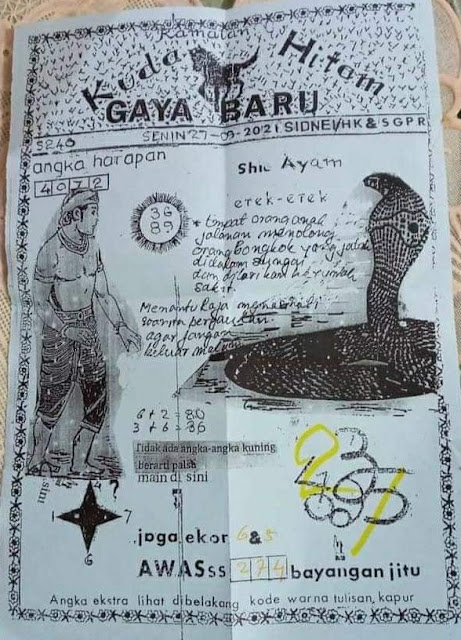 Ramalan
Kuda Hitam
GAYA BARU
SENIN 27-09-2021 SIDNEI/HK & SGPR
S240
angka harapan
Shio Ayam
4072
36
89
erek-erek
Empat orang anak
jalanan menolong
orang bongkok yang jatuh
didalam sungai
dan dilarikan kerumah
sakit
Menantu Raja menasehati
wanita pergaulan
agar jangan
keluar malam
6 + 2 = 80
3 + 6 = 36
Tidak ada angka-angka kuning
berarti palsu
main di sini
?
1
7
6
2 1
joga ekor 6 & 5
AWASss 274 bayangan jitu
Angka ekstra lihat dibelakang kode warna tulisan, kapur